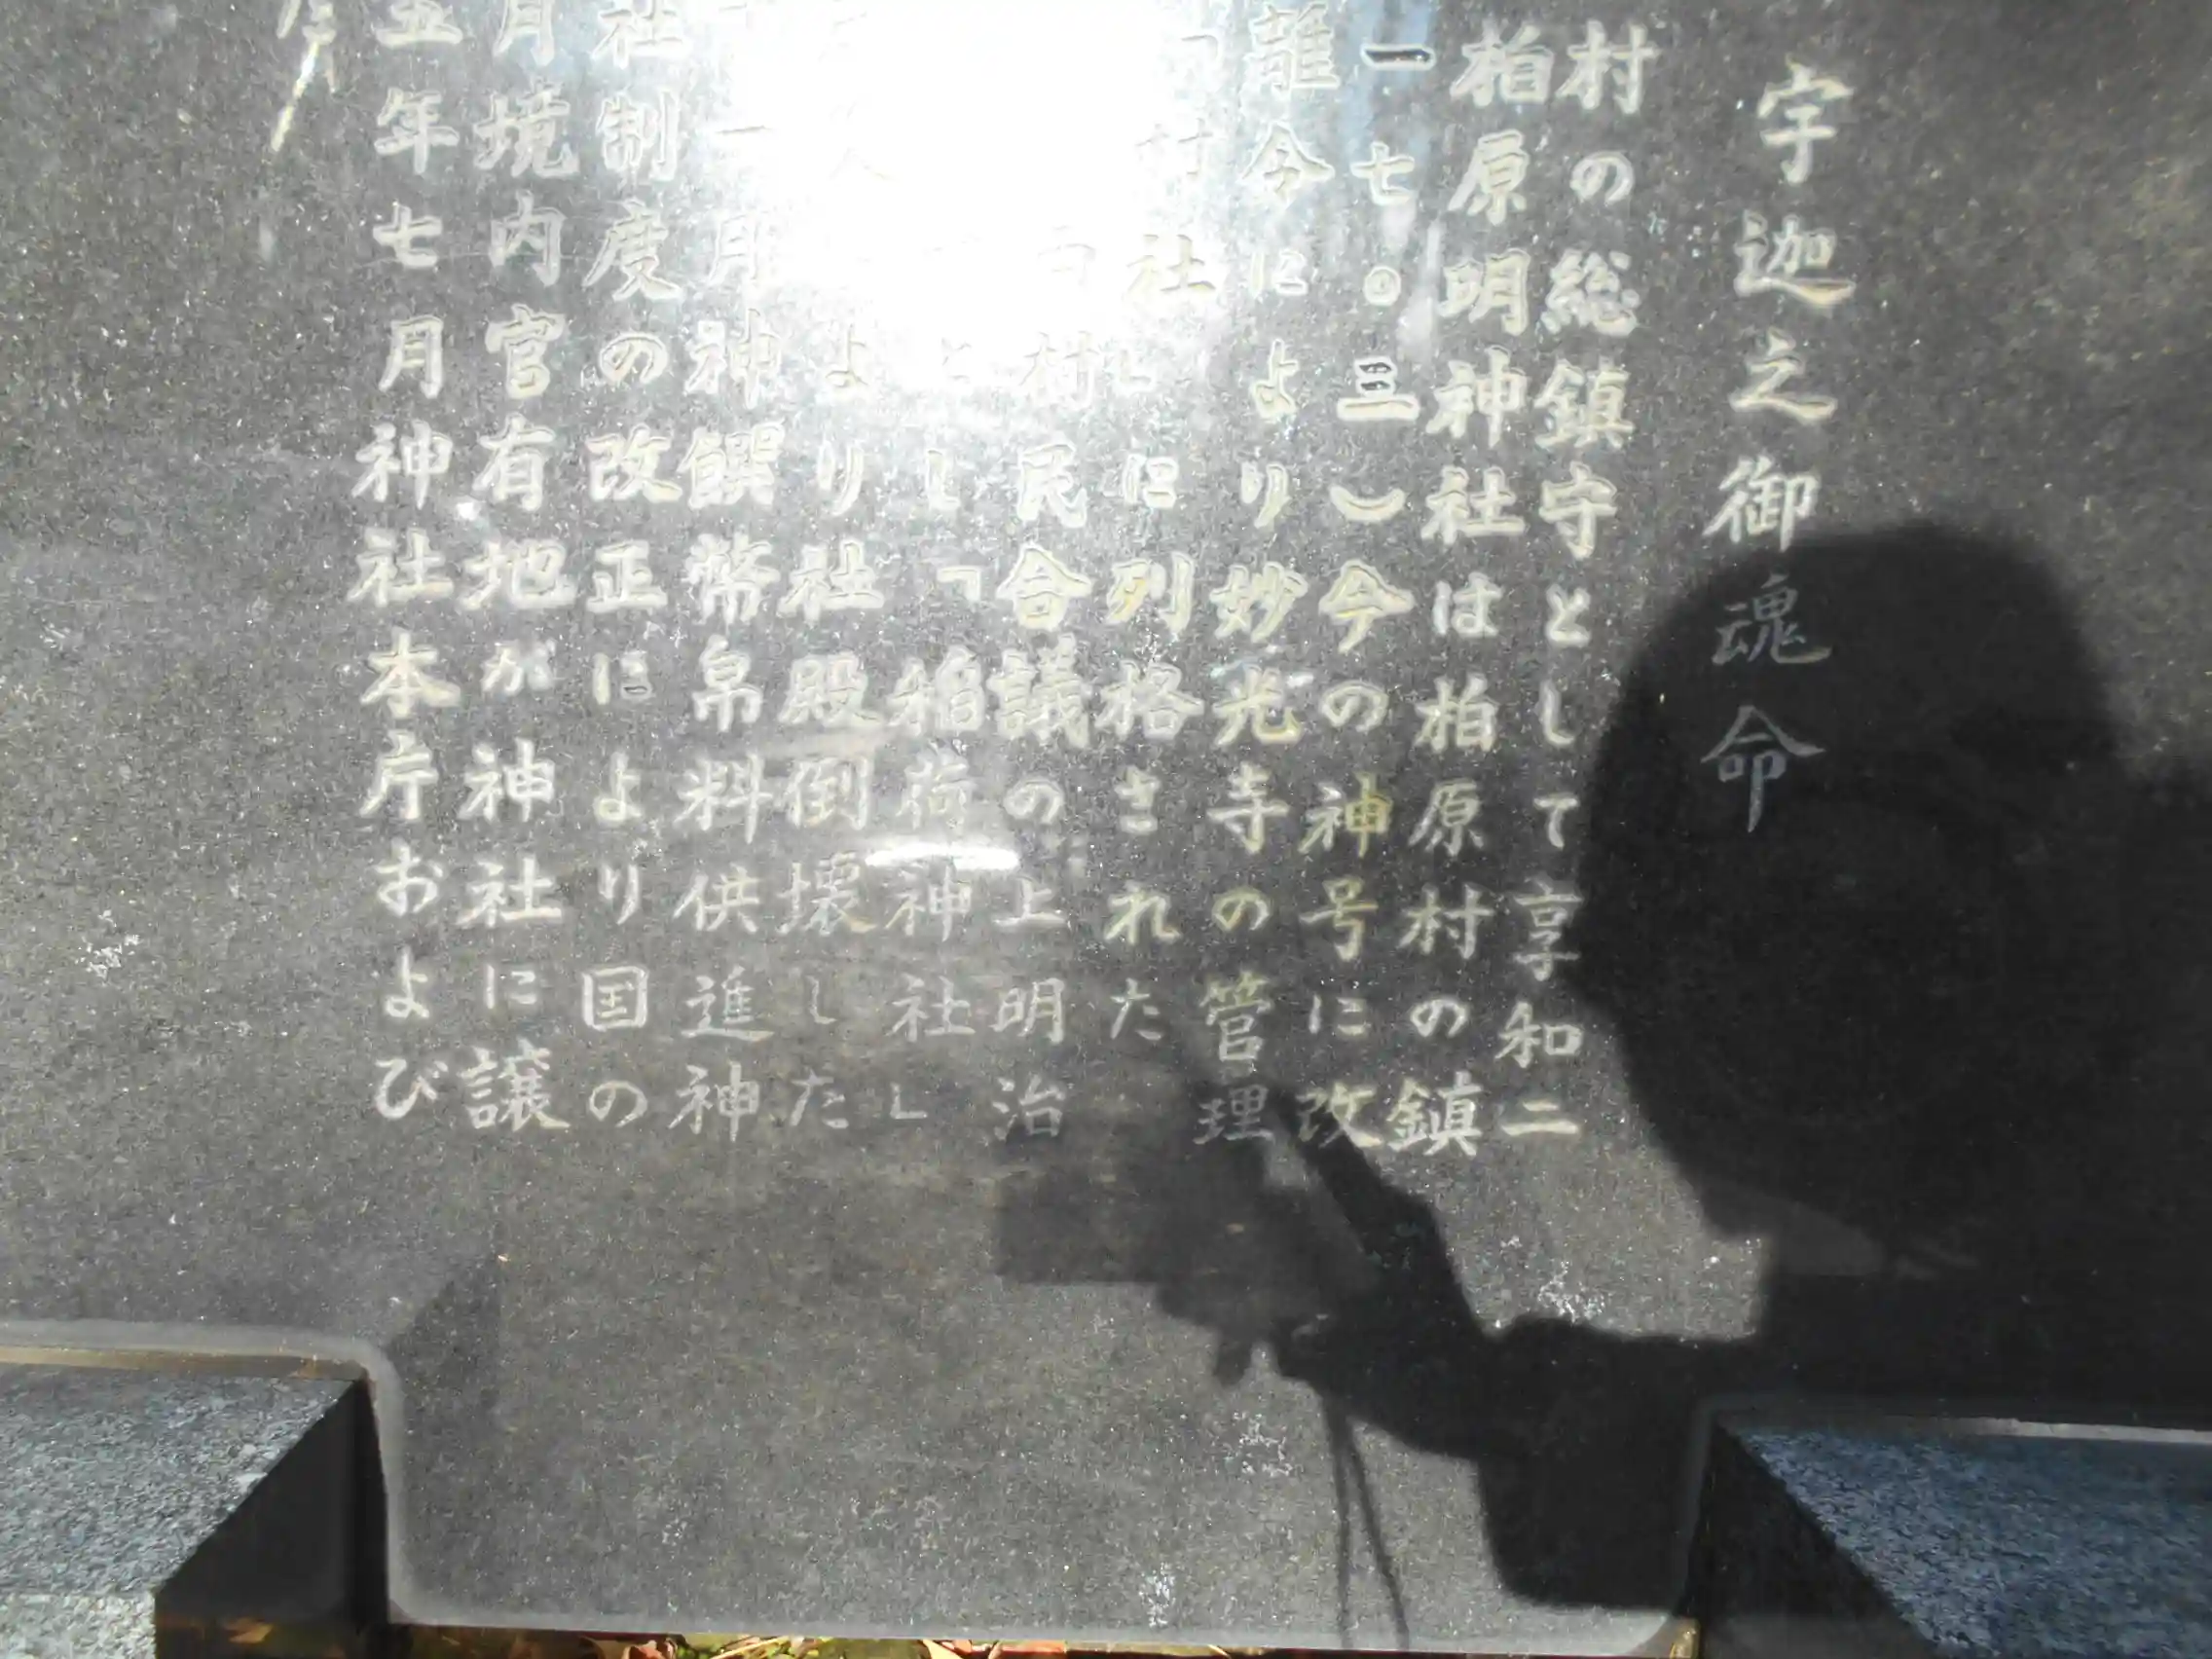 宇迦之御魂命
村の総鎮守として享和二
柏原明神社は柏原村の鎮
一七〇三)今の神号に改
離令により妙光寺の管理
村社に列格された
村民合議の上明治
とし「稲荷神社」
より社殿倒壊した
月神饌幣帛料供進神
社制度の改正により国の
月境内官有地が神社に譲
五年七月神社本庁および